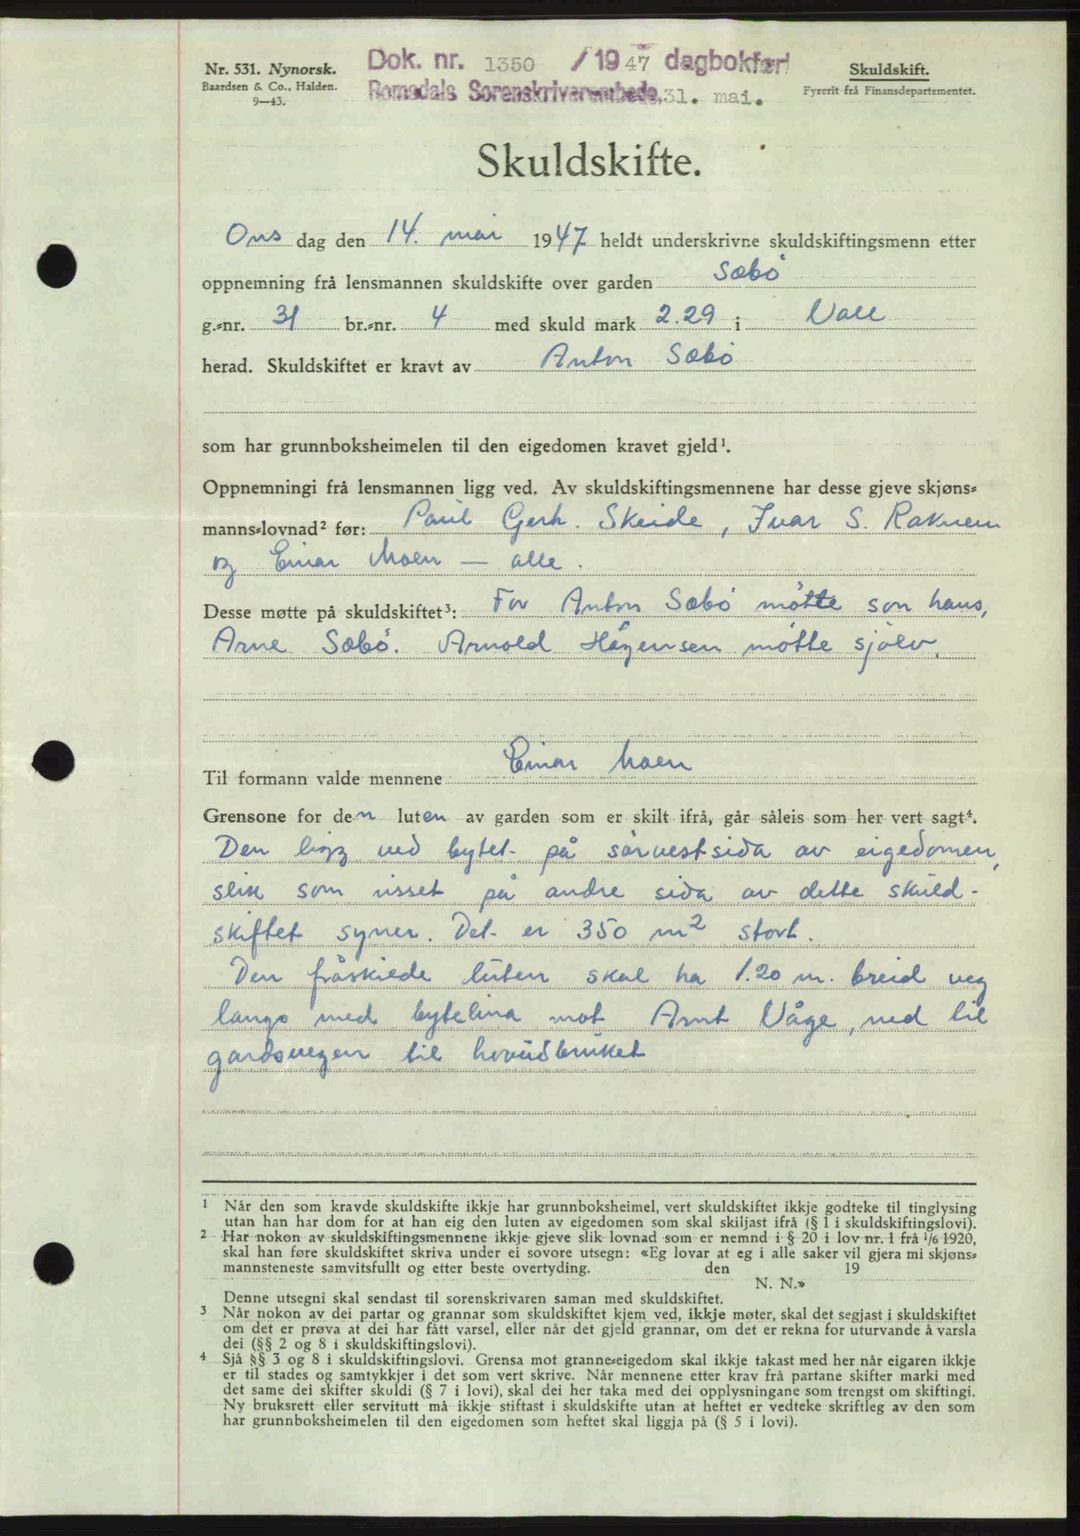 Nr. 531. Nynorsk.
Baardsen & Co., Halden.
9—43.
Dok. nr. 1350 / 1947 dagbokført
Romsdals Sorenskriverembede, 31. mai.
Skuldskift.
Fyrerit frå Finansdepartementet.
Skuldskifte.
Ons dag den 14. mai 1947 heldt underskrivne skuldskiftingsmenn etter
oppnemning frå lensmannen skuldskifte over garden Sæbö
g.-nr. 31 br.-nr. 4 med skuld mark 2.29 i Voll
herad. Skuldskiftet er kravt av Anton Sæbö
som har grunnboksheimelen til den eigedomen kravet gjeld¹.
Oppnemningi frå lensmannen ligg ved. Av skuldskiftingsmennene har desse gjeve skjøns-
manns-lovnad² før: Paul Gerh. Skeide, Ivar S. Raknem
og Einar Moen — alle.
Desse møtte på skuldskiftet³: For Anton Sæbö mötte son hans,
Arne Sæbö. Arnold Hågensen mötte sjölv.
Til formann valde mennene Einar Moen
Grensone for den luten av garden som er skilt ifrå, går såleis som her vert sagt⁴.
Den ligg ved bytet på sörvestsida av eigedomen,
slik som risset på andre sida av dette skuld-
skiftet syner. Det er 350 m² stort.
Den fråskilde luten skal ha 1.20 m. breid veg
langs med bytelina mot Arnt Våge, ned til
gardsvegen til hovudbruket
¹ Når den som kravde skuldskifte ikkje har grunnboksheimel, vert skuldskiftet ikkje godteke til tinglysing
utan han har dom for at han eig den luten av eigedomen som skal skiljast ifrå (§ 1 i skuldskiftingslovi).
² Har nokon av skuldskiftingsmennene ikkje gjeve slik lovnad som er nemnd i § 20 i lov nr. 1 frå 1/6 1920,
skal han føre skuldskiftet skriva under ei sovore utsegn: «Eg lovar at eg i alle saker vil gjera mi skjøns-
mannsteneste samvitsfullt og etter beste overtyding. den 19
N. N.»
Denne utsegni skal sendast til sorenskrivaren saman med skuldskiftet.
³ Når nokon av dei partar og grannar som skuldskiftet kjem ved, ikkje møter, skal det segjast i skuldskiftet
om det er prøva at dei har fått varsel, eller når det gjeld grannar, om det er rekna for uturvande å varsla
dei (§§ 2 og 8 i skuldskiftingslovi).
⁴ Sjå §§ 3 og 8 i skuldskiftingslovi. Grensa mot granne-eigedom skal ikkje takast med her når eigaren ikkje
er til stades og samtykkjer i det som vert skrive. Når mennene etter krav frå partane skifter marki med
det same dei skifter skuldi (§ 7 i lovi), skal dei her taka med dei opplysningane som trengst om skiftingi.
Ny bruksrett eller servitutt må ikkje stiftast i skuldskifte utan at heftet er vedteke skriftleg av den som
har grunnboksheimelen til den eigedomen som heftet skal liggja på (§ 5 i lovi).